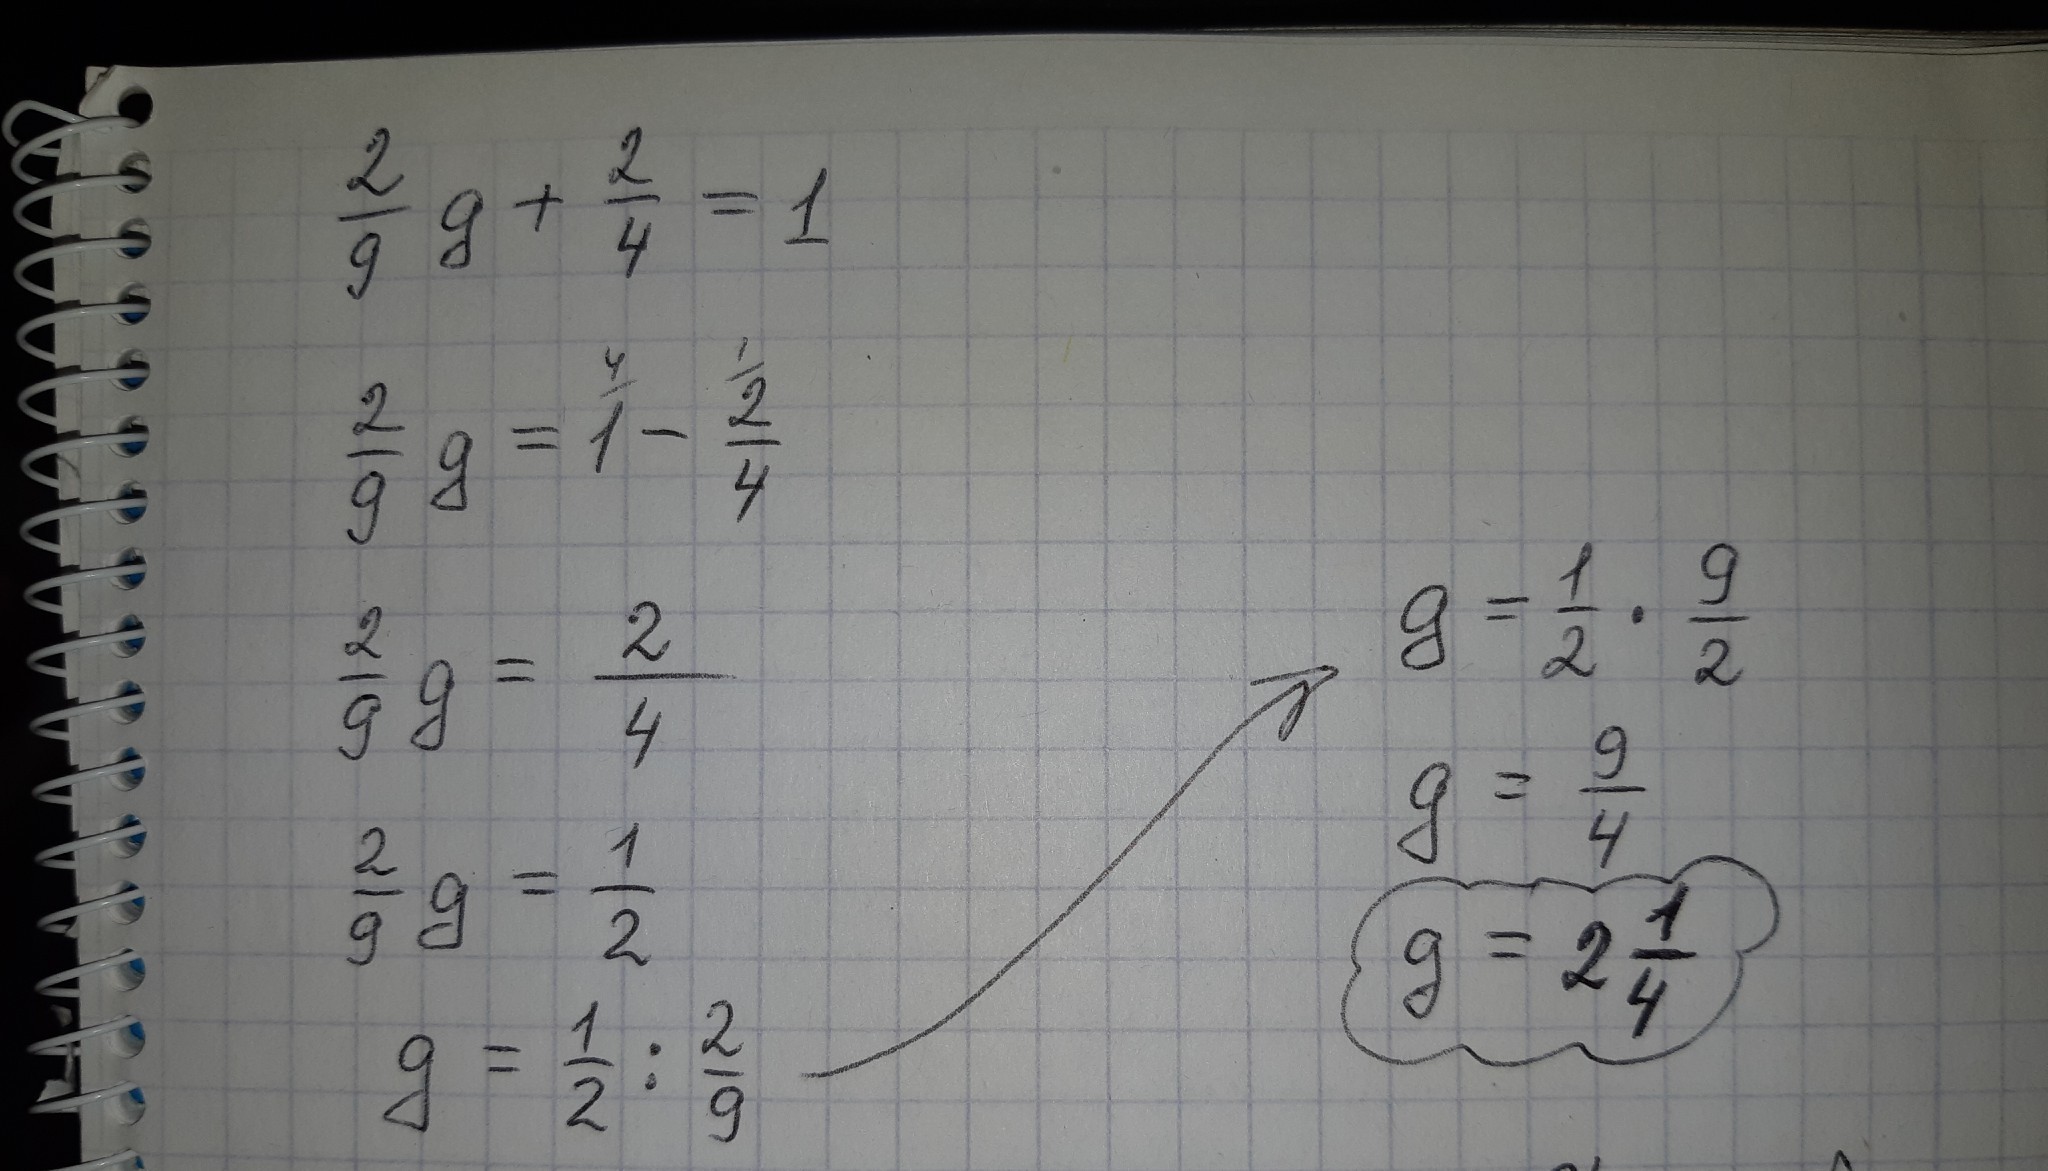 2/9 g + 2/4 = 1
4 1
2/9 g = 1 - 2/4
2/9 g = 2/4
2/9 g = 1/2
g = 1/2 : 2/9
g = 1/2 · 9/2
g = 9/4
g = 2 1/4